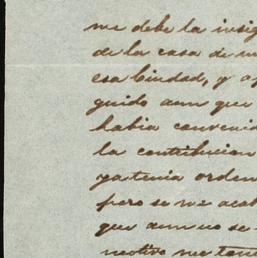 me debe la insig
de la casa de mi
esa Ciudad, y a
guido aun que
habia convenid
la contribucion
ya tenia orden
pero se me acab
que aun no se
motivo me ten